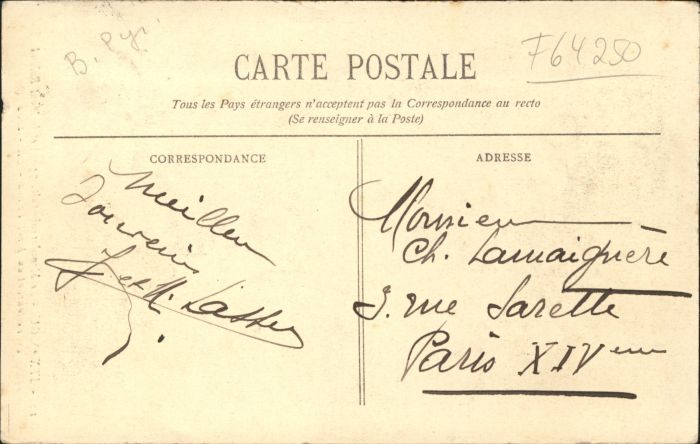 B. Pyr.
F64250
CARTE POSTALE
Tous les Pays étrangers n'acceptent pas la Correspondance au recto
(Se renseigner à la Poste)
CORRESPONDANCE
Meilleur
souvenir
J et M.
ADRESSE
Monsieur
Ch. Lamaignère
3. rue Sarette
Paris XIVeme